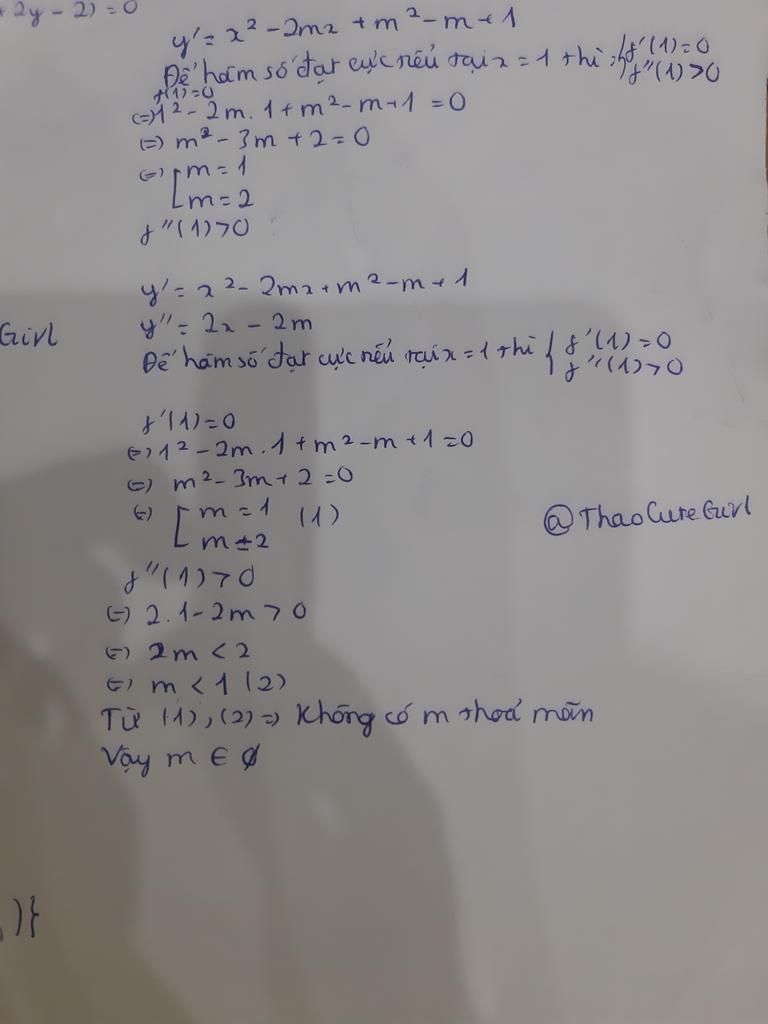 + 2y - 2) = 0
y' = x² - 2mx + m² - m + 1
Để hàm số đạt cực tiểu tại x = 1 thì { f'(1) = 0
f''(1) > 0
f'(1) = 0
(=) 1² - 2m . 1 + m² - m + 1 = 0
(=) m² - 3m + 2 = 0
(=) [ m = 1
m = 2
f''(1) > 0
y' = x² - 2mx + m² - m + 1
Girl
y'' = 2x - 2m
Để hàm số đạt cực tiểu tại x = 1 thì { f'(1) = 0
f''(1) > 0
f'(1) = 0
(=) 1² - 2m . 1 + m² - m + 1 = 0
(=) m² - 3m + 2 = 0
(=) [ m = 1 (1)
m = 2
@ThaoCuteGirl
f''(1) > 0
(=) 2 . 1 - 2m > 0
(=) 2m < 2
(=) m < 1 (2)
Từ (1), (2) => Không có m thoả mãn
Vậy m ∈ ∅
)}